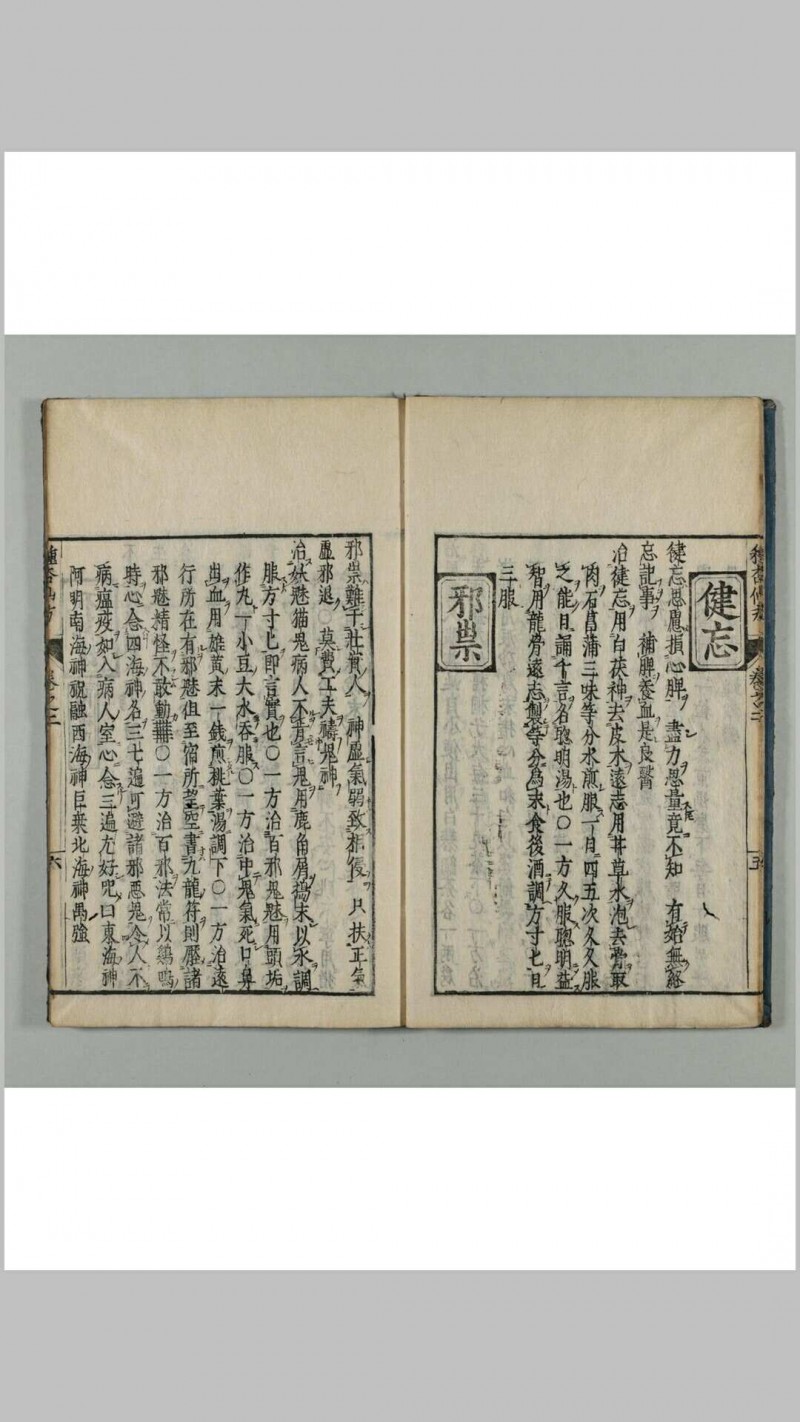 健忘
健忘思慮損心脾 盡力思量竟不知 有始無終
忘記事 補脾養血是良醫
治健忘用白茯神去皮木遠志用甘草水泡去骨取
肉石菖蒲三味等分水煎服一日四五次久久服
之能日誦千言名聰明湯也〇一方久服聰明益
智用龍骨遠志製等分為末食後酒調方寸匕日
三服
邪祟
邪祟難干壯實人 神虛氣弱致相侵 只扶正氣
虛邪退 莫費工夫禱鬼神
治妖魅猫鬼病人不肯言鬼用鹿角屑搗末以水調
服方寸匕即言實也〇一方治百邪鬼魅用頭垢
作丸一小豆大水吞服〇一方治中鬼氣死口鼻
出血用雄黃末一錢煎桃葉湯調下〇一方治遠
行所在有邪魅但至宿所望空書九龍符則壓諸
邪魅精怪不敢動〇一方治百邪法常以鷄鳴
時心念四海神名三七遍可避諸邪惡鬼令人不
病瘟疫如入病人室心念三遍尤好咒曰東海神
阿明南海神祝融西海神巨乗北海神禺強
種杏仙方
卷之二
五
六